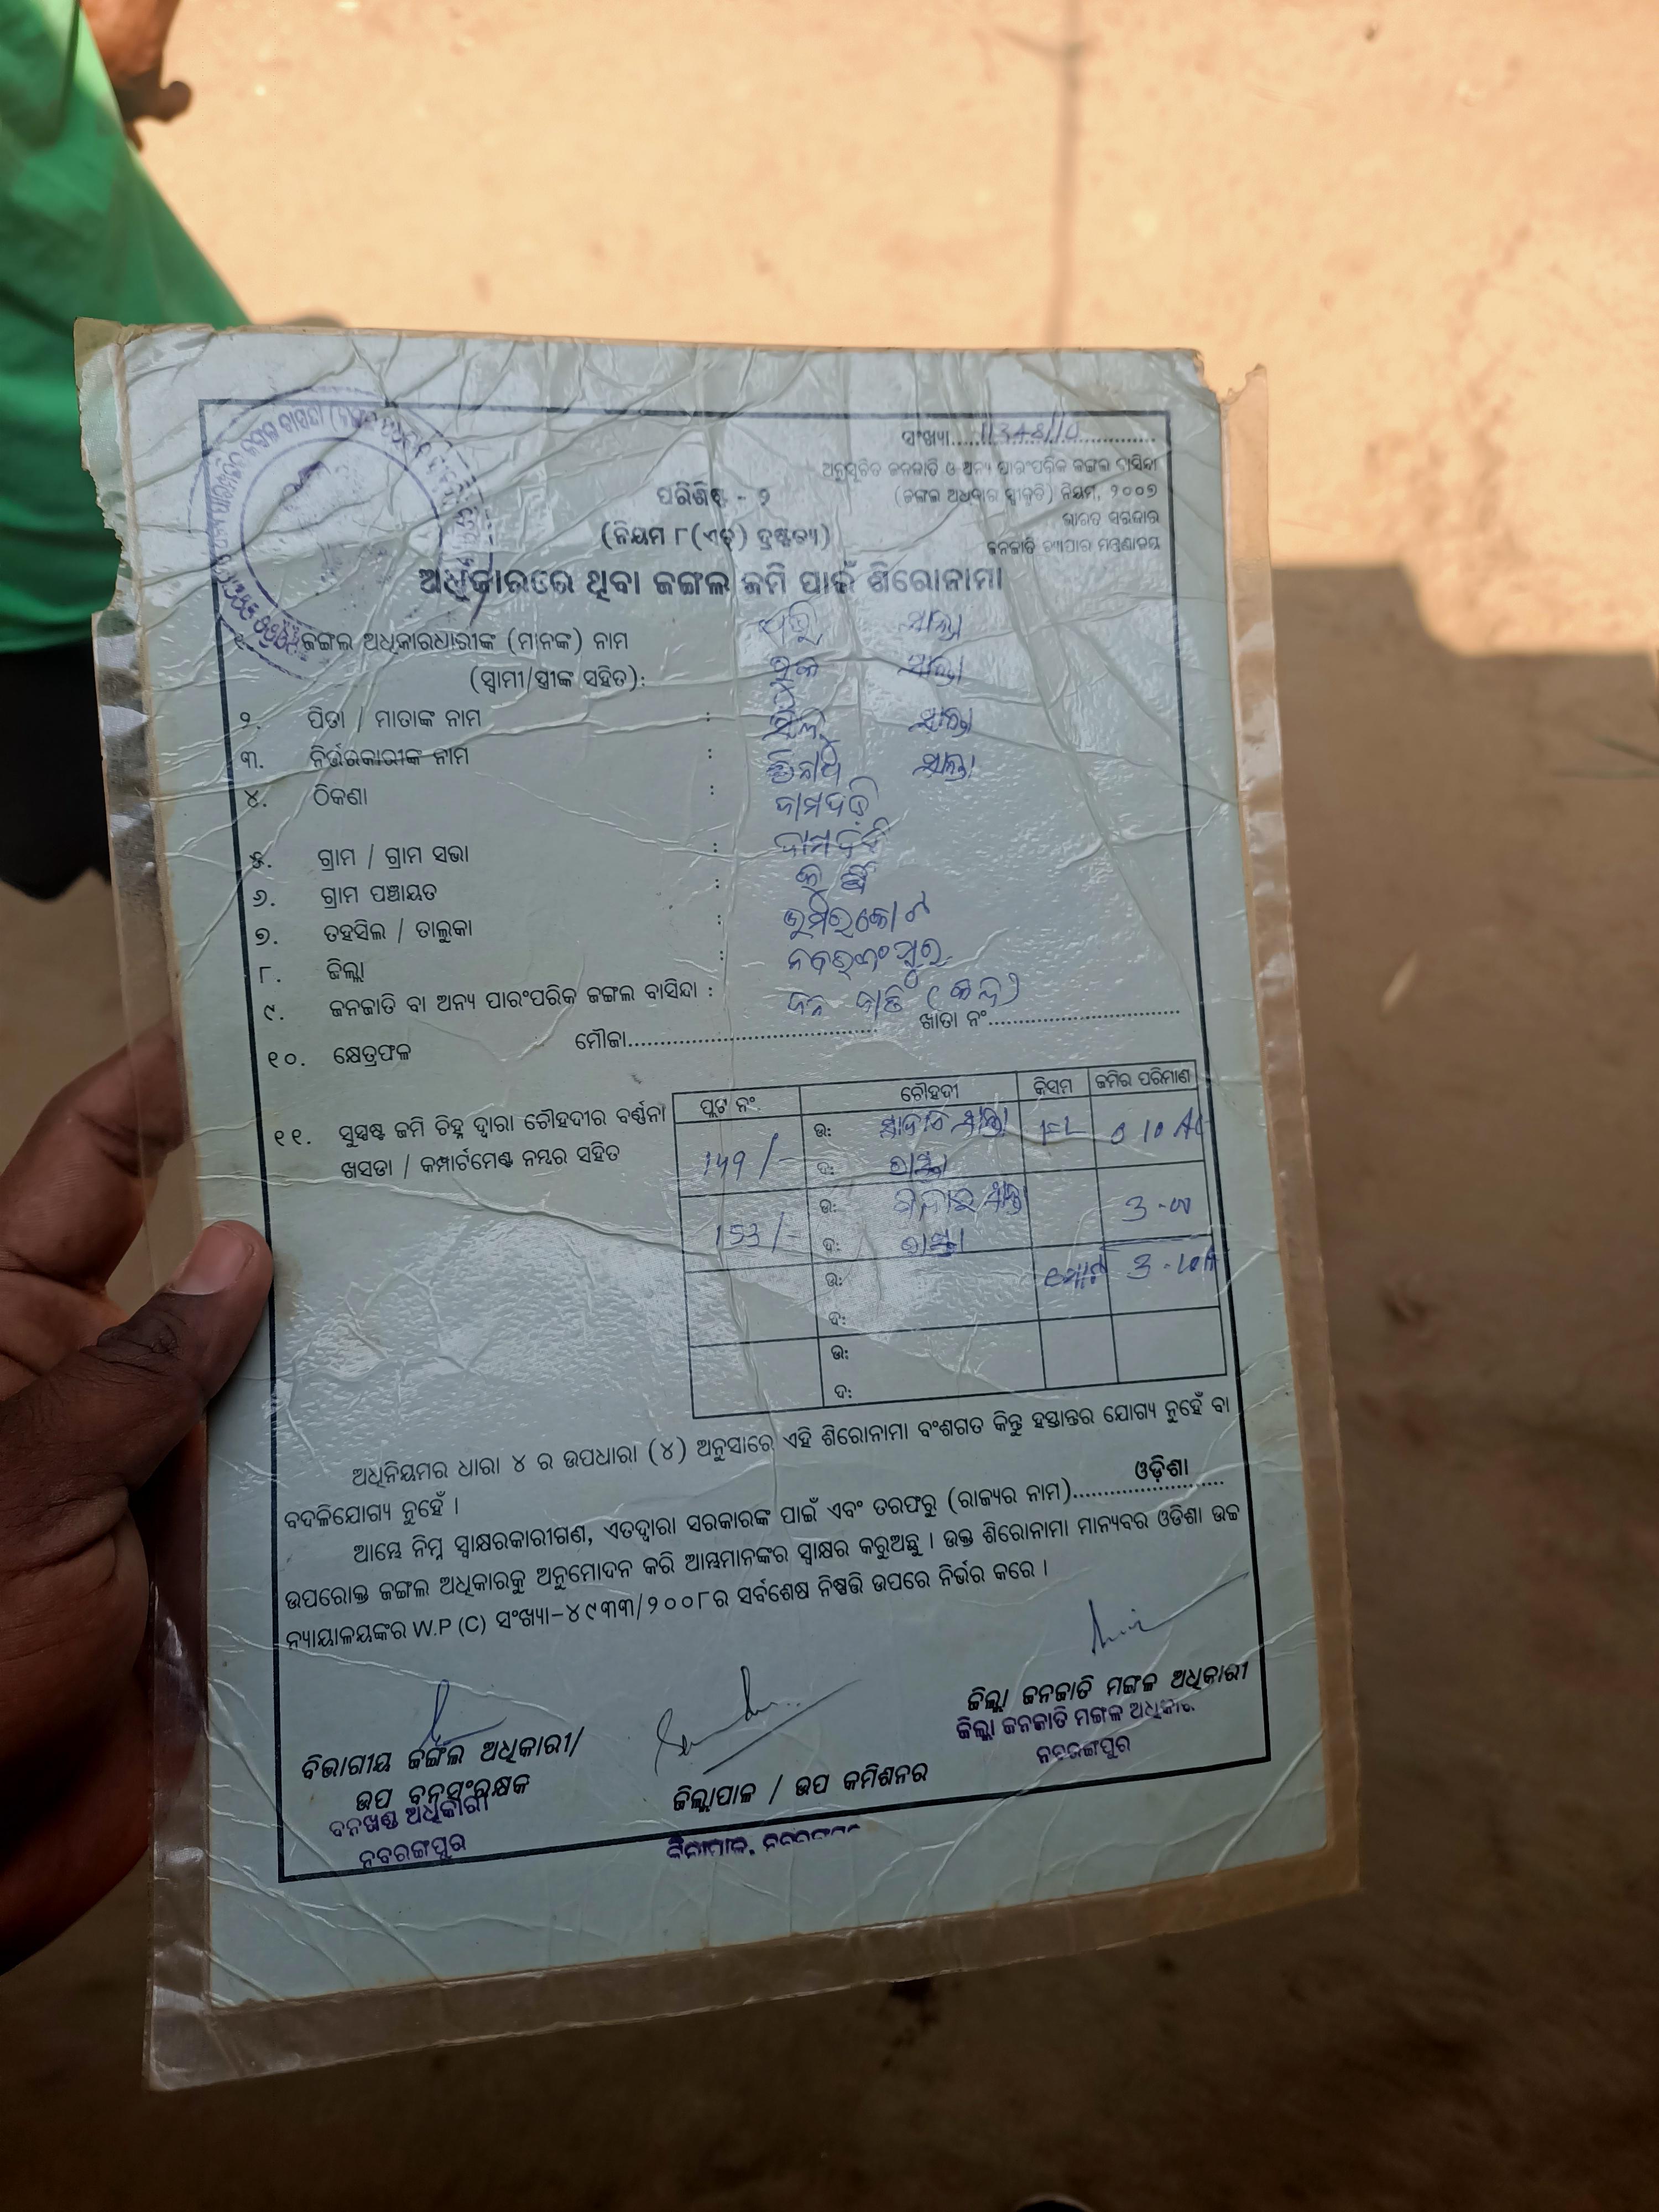 ସଂଖ୍ୟା..... 11348/10
ଅନୁସୂଚିତ ଜନଜାତି ଓ ଅନ୍ୟ ପାରଂପରିକ ଜଙ୍ଗଲ ବାସିନ୍ଦା
(ଜଙ୍ଗଲ ଅଧିକାର ସ୍ୱୀକୃତି) ନିୟମ, ୨୦୦୭
ଭାରତ ସରକାର
ଜନଜାତି ବ୍ୟାପାର ମନ୍ତ୍ରଣାଳୟ
ପରିଶିଷ୍ଟ - ୨
(ନିୟମ ୮(ଏଚ୍) ଦ୍ରଷ୍ଟବ୍ୟ)
ଅଧିକାରରେ ଥିବା ଜଙ୍ଗଲ ଜମି ପାଇଁ ଶିରୋନାମା
୧. ଜଙ୍ଗଲ ଅଧିକାରଧାରୀଙ୍କ (ମାନଙ୍କ) ନାମ
(ସ୍ୱାମୀ/ସ୍ତ୍ରୀଙ୍କ ସହିତ):
୨. ପିତା / ମାତାଙ୍କ ନାମ :
୩. ନିର୍ଭରକାରୀଙ୍କ ନାମ :
୪. ଠିକଣା :
୫. ଗ୍ରାମ / ଗ୍ରାମ ସଭା :
୬. ଗ୍ରାମ ପଞ୍ଚାୟତ :
୭. ତହସିଲ / ତାଲୁକା : ଝୁମରକୋଟ
୮. ଜିଲ୍ଲା : ନବରଙ୍ଗପୁର
୯. ଜନଜାତି ବା ଅନ୍ୟ ପାରଂପରିକ ଜଙ୍ଗଲ ବାସିନ୍ଦା : ଜନ ଜାତି (କନ୍ଧ)
୧୦. କ୍ଷେତ୍ରଫଳ ମୌଜା.............. ଖାତା ନଂ..............
୧୧. ସୁସ୍ପଷ୍ଟ ଜମି ଚିହ୍ନ ଦ୍ୱାରା ଚୌହଦୀର ବର୍ଣ୍ଣନା
ଖସଡା / କମ୍ପାର୍ଟମେଣ୍ଟ ନମ୍ବର ସହିତ
ପ୍ଲଟ ନଂ ଚୌହଦୀ କିସମ ଜମିର ପରିମାଣ
149/- ଉ: 0 10 AC
ଦ: ରାସ୍ତା
153/- ଉ: 3-00
ଦ: ରାସ୍ତା
ଉ: ମୋଟ 3-10
ଦ:
ଉ:
ଦ:
ଅଧିନିୟମର ଧାରା ୪ ର ଉପଧାରା (୪) ଅନୁସାରେ ଏହି ଶିରୋନାମା ବଂଶଗତ କିନ୍ତୁ ହସ୍ତାନ୍ତର ଯୋଗ୍ୟ ନୁହେଁ ବା
ବଦଳିଯୋଗ୍ୟ ନୁହେଁ ।
ଆମ୍ଭେ ନିମ୍ନ ସ୍ୱାକ୍ଷରକାରୀଗଣ, ଏତଦ୍ୱାରା ସରକାରଙ୍କ ପାଇଁ ଏବଂ ତରଫରୁ (ରାଜ୍ୟର ନାମ)......ଓଡ଼ିଶା......
ଉପରୋକ୍ତ ଜଙ୍ଗଲ ଅଧିକାରକୁ ଅନୁମୋଦନ କରି ଆମ୍ଭମାନଙ୍କର ସ୍ୱାକ୍ଷର କରୁଅଛୁ । ଉକ୍ତ ଶିରୋନାମା ମାନ୍ୟବର ଓଡିଶା ଉଚ୍ଚ
ନ୍ୟାୟାଳୟଙ୍କର W.P (C) ସଂଖ୍ୟା-୪୯୩୩/୨୦୦୮ର ସର୍ବଶେଷ ନିଷ୍ପତ୍ତି ଉପରେ ନିର୍ଭର କରେ ।
ବିଭାଗୀୟ ଜଙ୍ଗଲ ଅଧିକାରୀ/
ଉପ ବନସଂରକ୍ଷକ
ବନଖଣ୍ଡ ଅଧିକାରୀ
ନବରଙ୍ଗପୁର
ଜିଲ୍ଲାପାଳ / ଉପ କମିଶନର
ଜିଲ୍ଲାପାଳ, ନବରଙ୍ଗପୁର
ଜିଲ୍ଲା ଜନଜାତି ମଙ୍ଗଳ ଅଧିକାରୀ
ଜିଲ୍ଲା ଜନଜାତି ମଙ୍ଗଳ ଅଧିକାରୀ
ନବରଙ୍ଗପୁର